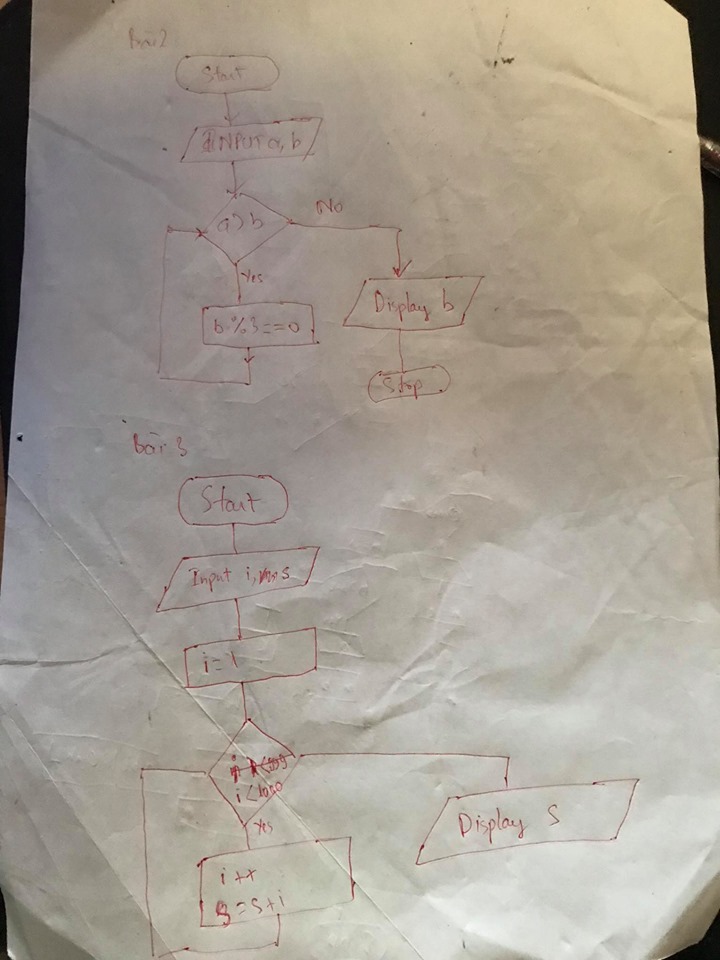 Bài 2
Start
INPUT a, b
a > b
No
Yes
b % 3 == 0
Display b
Stop
Bài 3
Start
Input i, s
i = 1
i < 1000
Yes
i ++
S = S + i
Display S